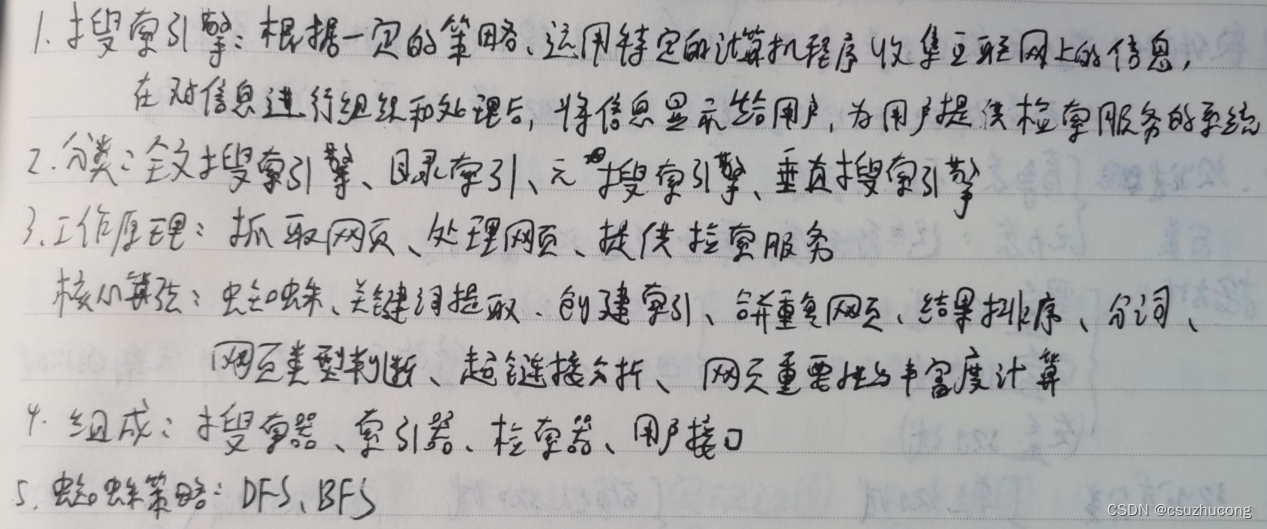 1. 搜索引擎：根据一定的策略、运用特定的计算机程序收集互联网上的信息，
在对信息进行组织和处理后，将信息显示给用户，为用户提供检索服务的系统
2. 分类：全文搜索引擎、目录索引、元搜索引擎、垂直搜索引擎
3. 工作原理：抓取网页、处理网页、提供检索服务
核心算法：蜘蛛、关键词提取、创建索引、合并重复网页、结果排序、分词、
网页类型判断、超链接分析、网页重要性与丰富度计算
4. 组成：搜索器、索引器、检索器、用户接口
5. 蜘蛛策略：DFS、BFS
CSDN @csuzhucong